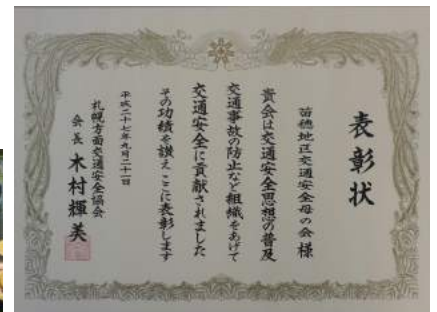 表彰状
苗穂地区交通安全母の会 様
貴会は交通安全思想の普及
交通事故の防止など組織をあげて
交通安全に貢献されました
その功績を讃えここに表彰します
平成二十七年九月二十一日
札幌方面交通安全協会
会長 木村輝美